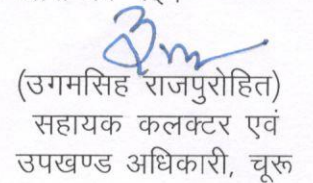 (उगमसिंह राजपुरोहित)
सहायक कलक्टर एवं
उपखण्ड अधिकारी, चूरू